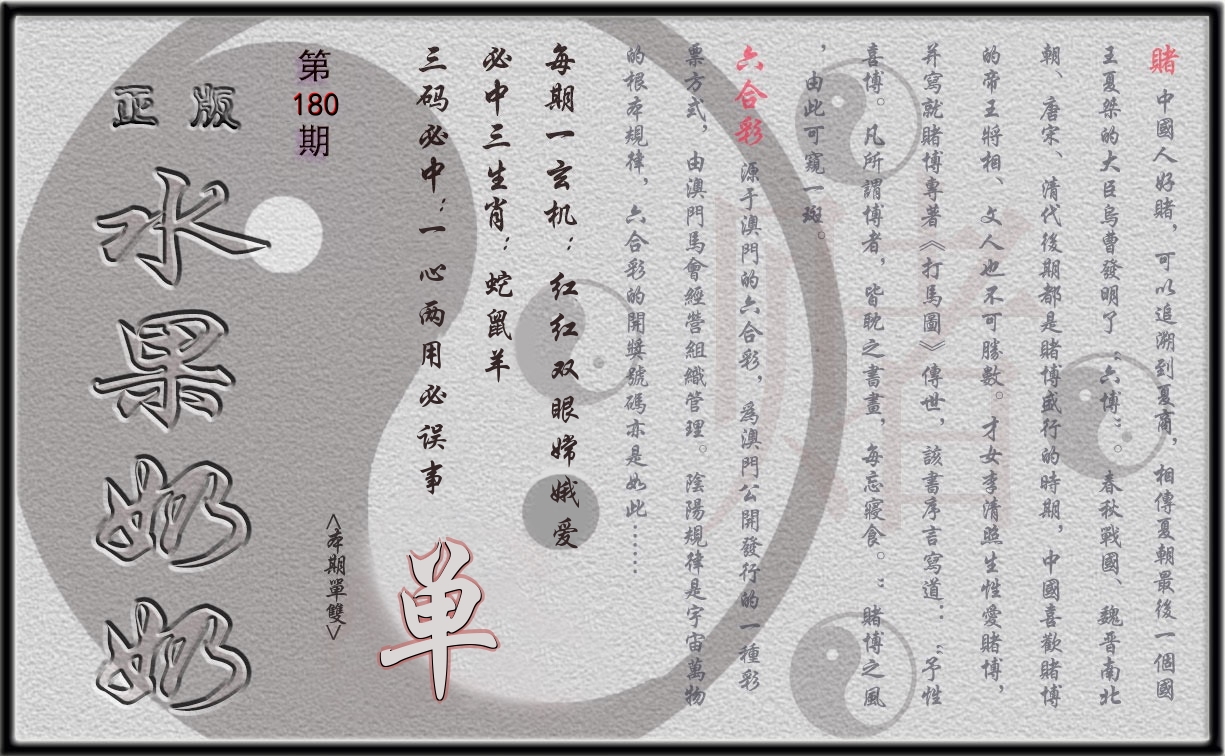 賭 中國人好賭，可以追溯到夏商，相傳夏朝最後一個國
王夏桀的大臣烏曹發明了“六博”。春秋戰國、魏晋南北
朝、唐宋、清代後期都是賭博盛行的時期，中國喜歡賭博
的帝王將相、文人也不可勝數。才女李清照生性愛賭博，
并寫就賭博專著《打馬圖》傳世，該書序言寫道：“予性
喜博。凡所謂博者，皆耽之晝書，每忘寢食。”賭博之風
，由此可窺一斑。
六合彩 源于澳門的六合彩，為澳門公開發行的一種彩
票方式，由澳門馬會經營組織管理。陰陽規律是宇宙萬物
的根本規律，六合彩的開獎號碼亦是如此……
每期一玄机：红红双眼嫦娥爱
必中三生肖：蛇鼠羊
三码必中：一心两用必误事
<本期單雙>
单
第
180
期
正版
水果奶奶
赌